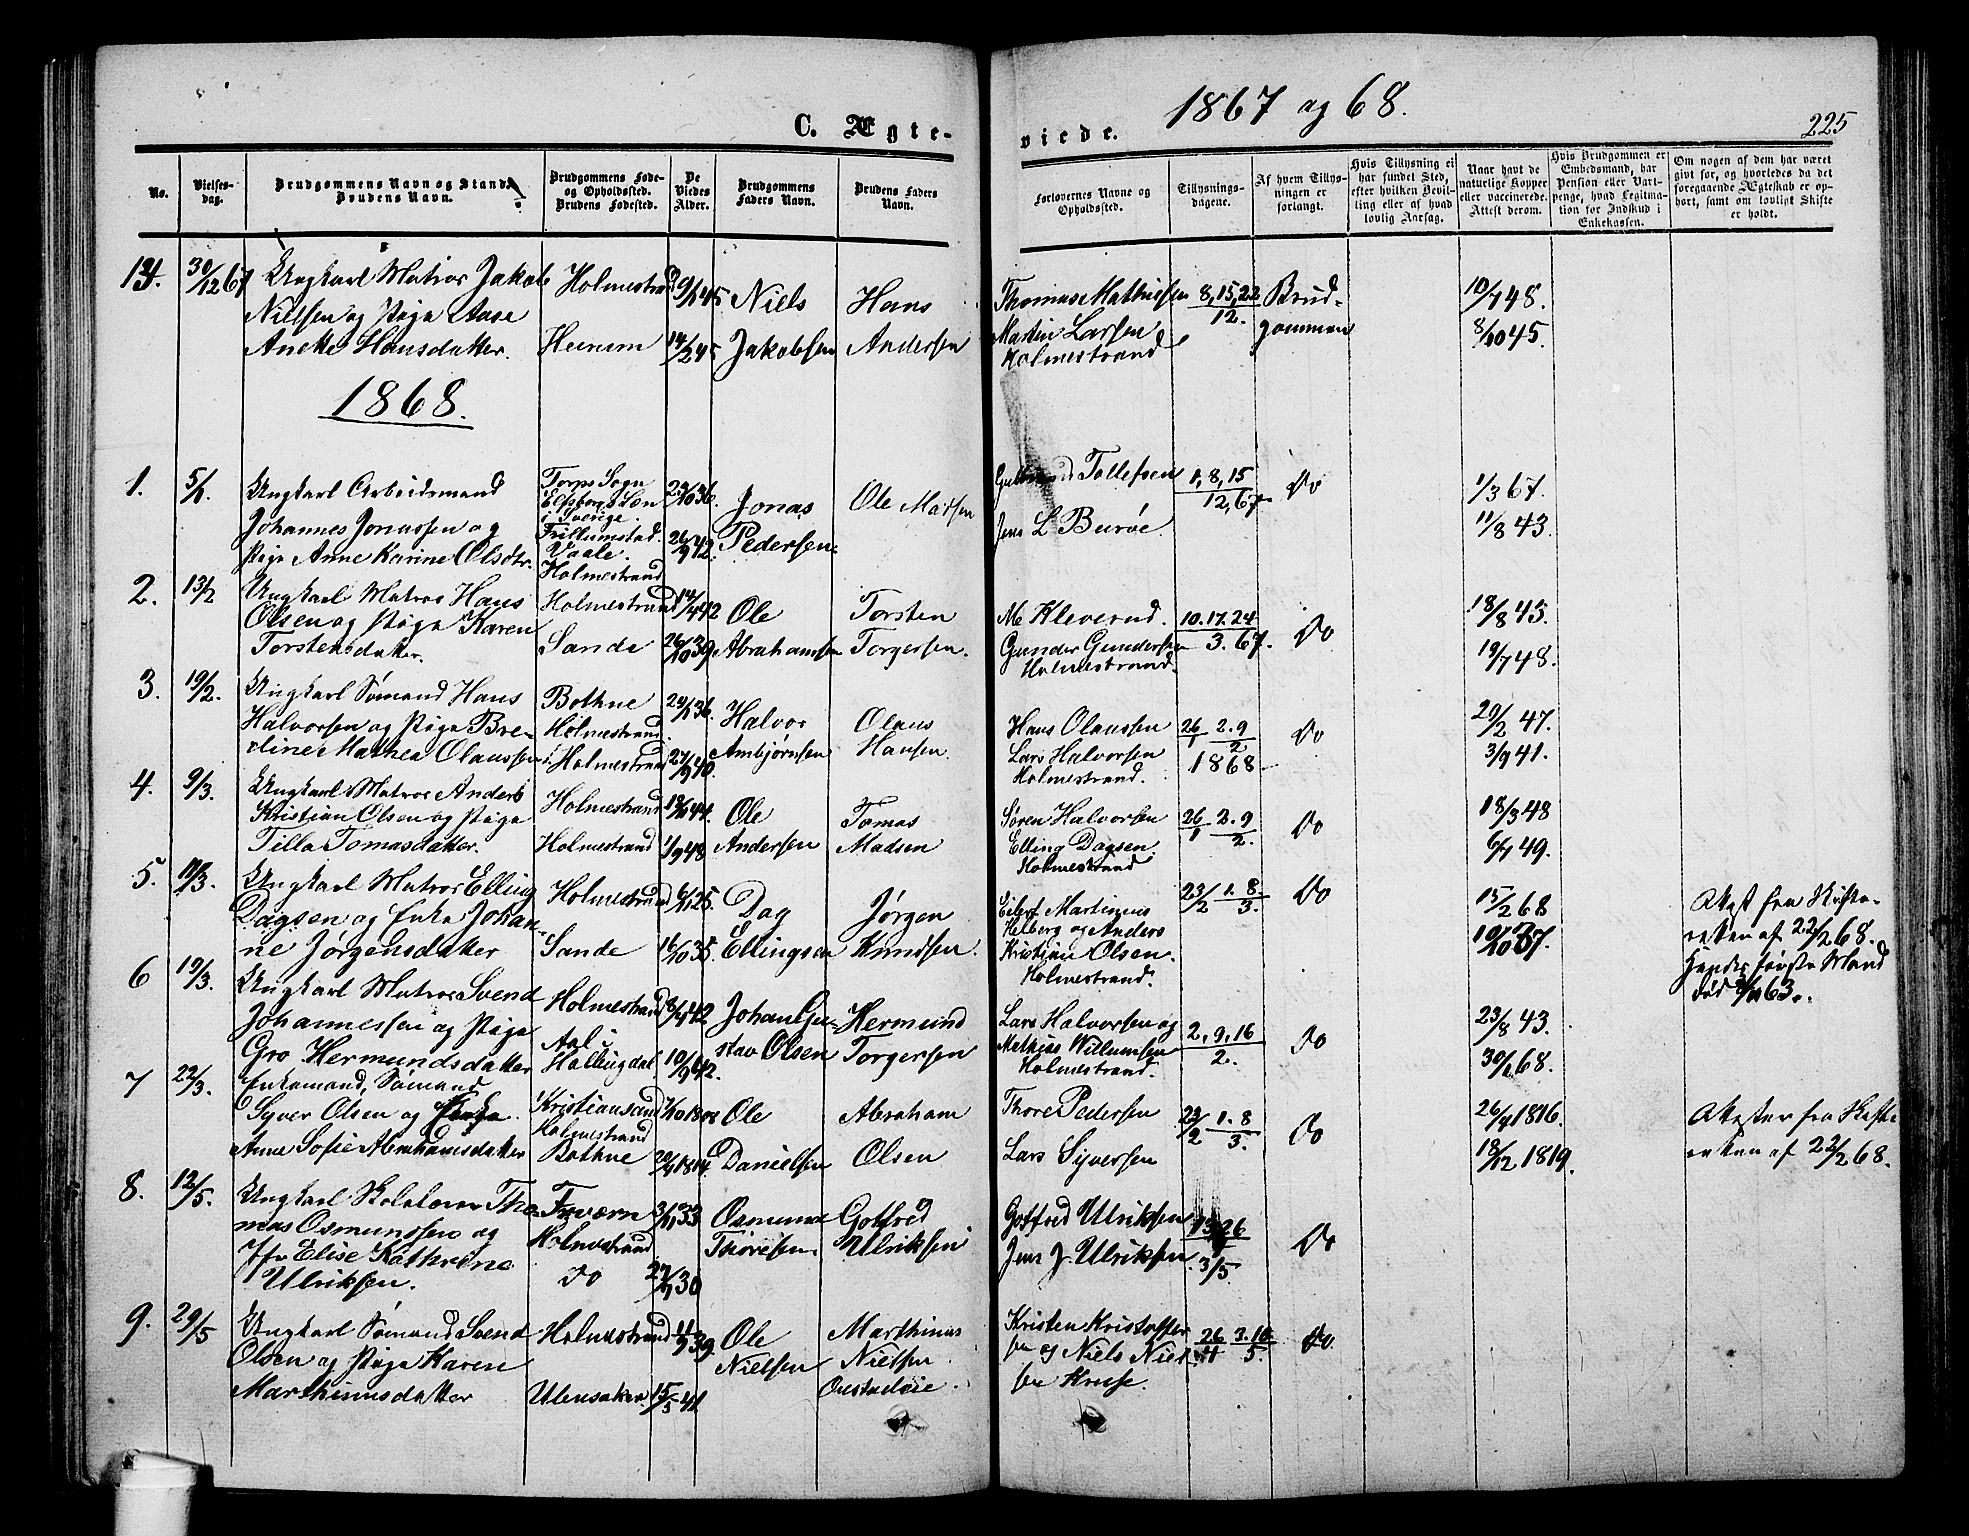 1867 og 68.
225
C. Ægte-
viede.
No.
Vielses-
dag.
Brudgommens Navn og Stand.
Brudens Navn.
Brudgommens Føde-
og Opholdssted.
Brudens Fødested.
De
Viedes
Alder.
Brudgommens
Faders Navn.
Brudens Faders
Navn.
Forlovernes Navne og
Opholdssted.
Tillysnings-
dagene.
Af hvem Tillys-
ningen er
forlangt.
Hvis Tillysning ei
har fundet Sted,
efter hvilken Bevil-
ling eller af hvad
lovlig Aarsag.
Naar havt de
naturlige Kopper
eller vaccinerede.
Attest derom.
Hvis Brudgommen er
Embedsmand, har
Pension eller Vart-
penge, hvad Legitima-
tion for Indskud i
Enkekassen.
Om nogen af dem har været
gift før, og hvorledes da det
foregaaende Ægteskab er op-
hørt, samt om lovligt Skifte
er holdt.
30/12 67 Ungkarl Matros Jakob Holmestrand Niels Hans Thomas Mathissen 8, 15, 22 Brud- 10/7 48.
Nielsen og Pige Aase 12. gommen
Anette Hansdatter. 14/2 45 Jakobsen Andersen Martin Larsen 8/10 45.
Holmestrand
1868.
1. 5/1. Ungkarl Arbeidsmand Torps Sogn 23/10 36. Jonas Ole Matsen Tollefsen 1, 8, 15 Do 1/3 67.
Elfsborgs Læn 12, 67
Johannes Jonassen og i Sverige Jens L Buröe 11/8 43.
Pige Anne Karine Olsdtr. Vaale. 26/9 42. Pedersen
Holmestrand
2. 13/2 Ungkarl Matros Hans Holmestrand 14/4 42 Ole Torsten M. Kleverud. 10. 17. 24 Do 18/8 43.
Olsen og Pige Karen Sande 26/10 39 Abrahamsen Torgersen. Gunder Gundersen 3. 67. 19/7 48.
Torstensdatter. Holmestrand.
3. 19/2. Ungkarl Sømand Hans Bothne 36. Halvor Olaus Hans Olaussen 26/1 2. 9/2 Do 20/2 47.
Halvorsen og Pige Bre- Holmestrand Ambjørnsen Hansen. Lars Halvorsen 1868 3/9 41.
dine Mathea Olaussen Holmestrand 27/9 40. Holmestrand.
4. 9/3. Ungkarl Matros Anders Holmestrand 44. Ole Tomas Søren Halvorsen 26/1 2. 9/2. Do 18/3 48
Kristian Olsen og Pige Elling Dagsen.
Tilla Tomasdatter. Holmestrand 1/9 48 Andersen Madsen Holmestrand 49.
5. 11/3. Ungkarl Matros Elling Holmestrand 25. Dag Jørgen Eilert Martinius 23/2 1. 8/3. Do 15/2 68 Attest fra Skifte-
Dagsen og Enke Johan- Helberg og Anders retten af 22/2 68.
ne Jørgensdatter Sande 16/10 35 Ellingsen Knudsen. Kristian Olsen. 37. Hendes første Mand
Holmestrand. død 63.
6 19/3. Ungkarl Matros Svend Holmestrand 42 Johan Gu- Hermund Lars Halvorsen og 2, 9, 16 Do 23/8 43.
Johannessen og Pige Aal i stav Olsen Torgersen Mathias Willumsen 2.
Gro Hermundsdatter Hallingdal 10/9 42. Holmestrand. 30/1 68.
7 22/3. Enkemand, Sømand Kristiansand 1808 Ole Abraham Thore Pedersen 23/2 1. 8/3. Do 26/4 1816. Attester fra Skifte
Syver Olsen og Enke Holmestrand
Anne Sofie Abrahamsdatter Bothne 1814. Danielsen Olsen Lars Syversen 18/12 1819. retten af 22/2 68.
8. 12/5. Ungkarl Skolelærer Tho- Treværn 3/11 33 Osmund Gotfred Gotfred Ulriksen 26 Do
mas Osmundsen og Holmestrand Thoresen Ulriksen Jens J. Ulriksen. 3/5.
Jfr Elise Kathrine Do 30
Ulriksen.
9. 29/5 Ungkarl Sømand Svend Holmestrand 39 Ole Marthinus Kristen Kristoffer 26/4 3. 10/5. Do.
Olsen og Pige Karen Nielsen Nielsen sen og Niels Niel
Marthinusdatter Ullensaker. 15/5 41 sen Kruse.